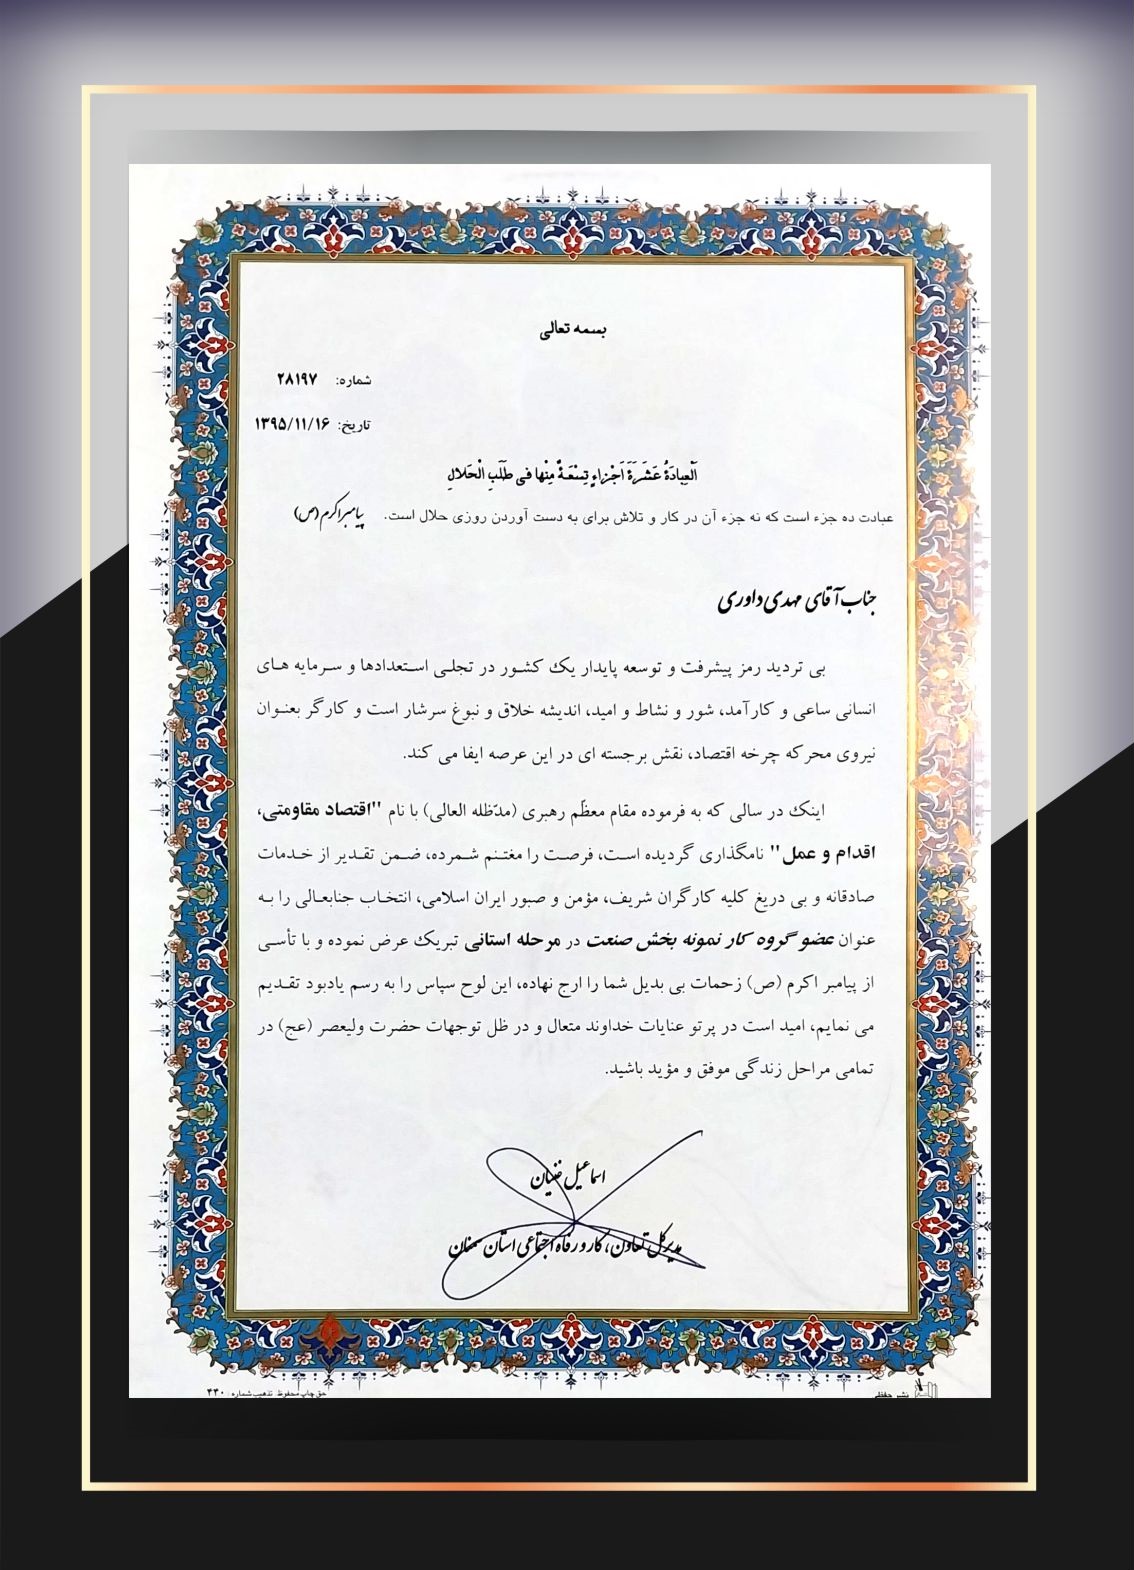 بسمه تعالی
شماره: ۲۸۱۹۷
تاریخ: ۱۳۹۵/۱۱/۱۶
اَلْعِبادَةُ عَشَرَةَ اَجْزاءٍ تِسْعَةٌ مِنْها فی طَلَبِ الْحَلالِ
عبادت ده جزء است که نه جزء آن در کار و تلاش برای به دست آوردن روزی حلال است. پیامبر اکرم (ص)
جناب آقای مهدی داوری
بی تردید رمز پیشرفت و توسعه پایدار یک کشور در تجلی استعدادها و سرمایه های
انسانی ساعی و کارآمد، شور و نشاط و امید، اندیشه خلاق و نبوغ سرشار است و کارگر بعنوان
نیروی محرکه چرخه اقتصاد، نقش برجسته ای در این عرصه ایفا می کند.
اینک در سالی که به فرموده مقام معظّم رهبری (مدّظله العالی) با نام "اقتصاد مقاومتی،
اقدام و عمل" نامگذاری گردیده است، فرصت را مغتنم شمرده، ضمن تقدیر از خدمات
صادقانه و بی دریغ کلیه کارگران شریف، مؤمن و صبور ایران اسلامی، انتخاب جنابعالی را به
عنوان عضو گروه کار نمونه بخش صنعت در مرحله استانی تبریک عرض نموده و با تأسی
از پیامبر اکرم (ص) زحمات بی بدیل شما را ارج نهاده، این لوح سپاس را به رسم یادبود تقدیم
می نمایم، امید است در پرتو عنایات خداوند متعال و در ظل توجهات حضرت ولیعصر (عج) در
تمامی مراحل زندگی موفق و مؤید باشید.
اسماعیل غنیان
مدیرکل تعاون، کار و رفاه اجتماعی استان سمنان
نشر حفظی
حق چاپ محفوظ تذهیب شماره: ۴۴۰